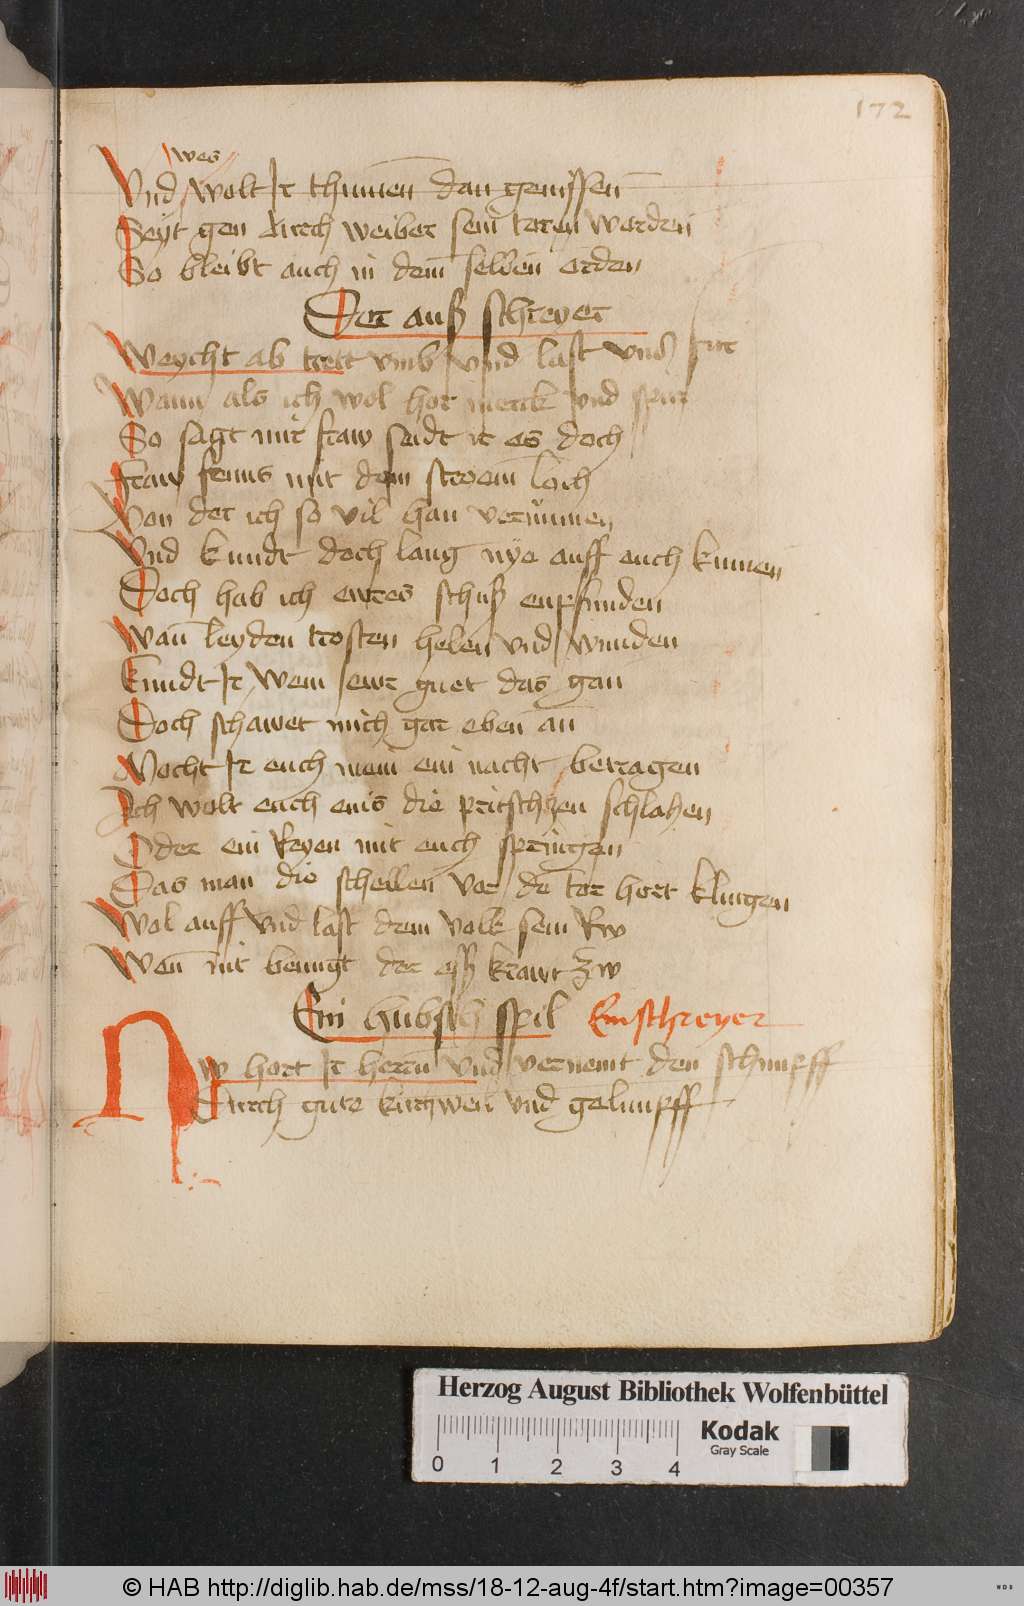 172
wes
Vnd wolt Ir thummen dan genissen
Seyt gen durch weiber sein toren worden
So bleibt auch in dem selben orden
Der auß schreyer
Weycht ab trett vmb vnd last vns fur
Wann als ich wol hor merck vnd spur
So sagt mir fraw seidt ir es doch
Fraw fenus mit dem stroem loch
Von der ich so vil han vernumen
Vnd kundt doch lang nye auff euch kumen
Doch hab ich ewres schuß enpfunden
Wan leyden trosten helen vnd wunden
Kundt Ir wem ewr guet das gan
Doch schawet mich gar eben an
Mocht Ir euch mein ein nacht betragen
Ich wolt euch eins die pritschen schlahen
Oder ein Reyen mit euch springen
Das man die schellen vor de tor hort klingen
Wol auff vnd last dem volk sein Rw
Wen nit benugt der eß krawt zw
Ein hubsch spil Einschreyer
Nw hort Ir herrn vnd vernemt den schimpff
Durch gute kurzweil vnd gelimpff
Herzog August Bibliothek Wolfenbüttel
Kodak
Gray Scale
0 1 2 3 4
© HAB http://diglib.hab.de/mss/18-12-aug-4f/start.htm?image=00357